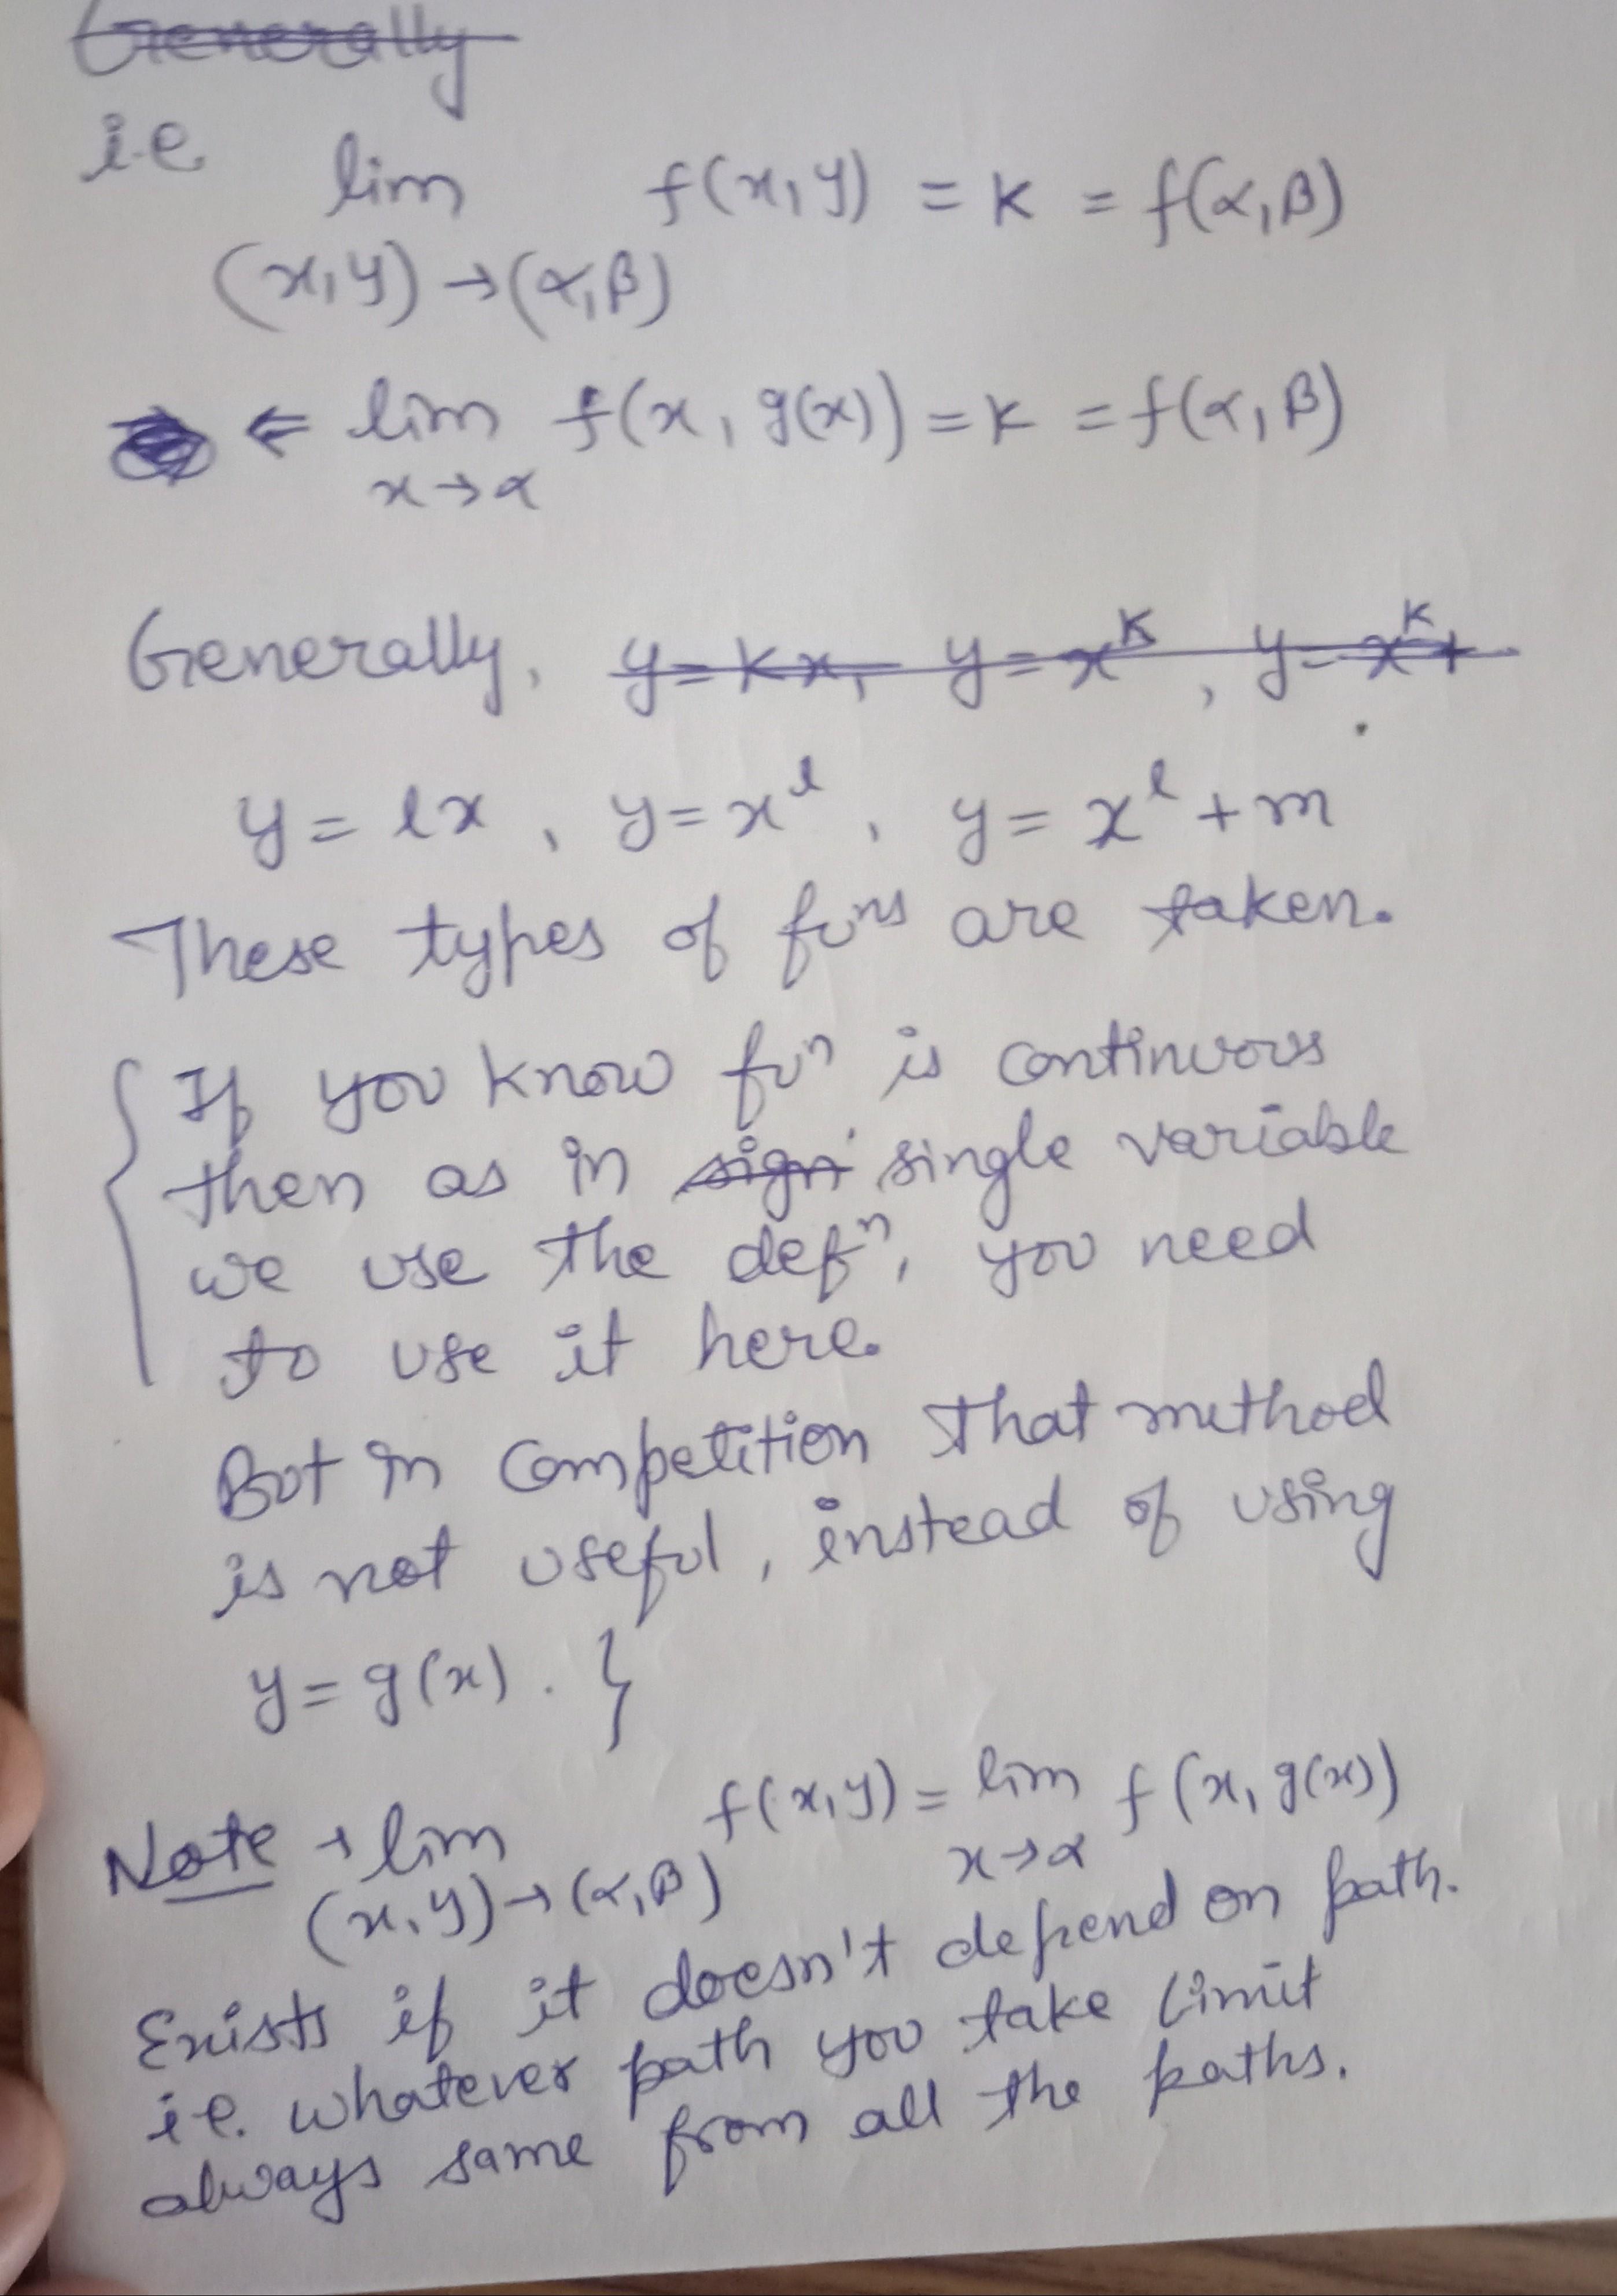 Generally
i.e lim f(x,y) = K = f(α,β)
(x,y)→(α,β)
⇐ lim f(x, g(x)) = K = f(α,β)
x→α
Generally, y=Kx, y=x^K, y=x^K+
y = lx, y=x^l, y= x^l+m
These types of fuⁿs are taken.
{ If you know fuⁿ is continuous
then as in sign single variable
we use the defⁿ, you need
to use it here.
But in competition that method
is not useful, instead of using
y = g(x). }
Note → lim f(x,y) = lim f(x, g(x))
(x,y)→(α,β) x→α
Exists if it doesn't depend on path.
i.e. whatever path you take limit
always same from all the paths.